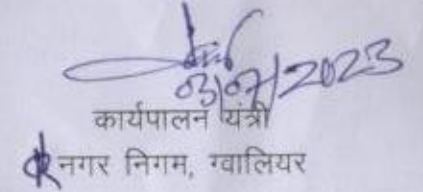 03/07/2023
कार्यपालन यंत्री
नगर निगम, ग्वालियर